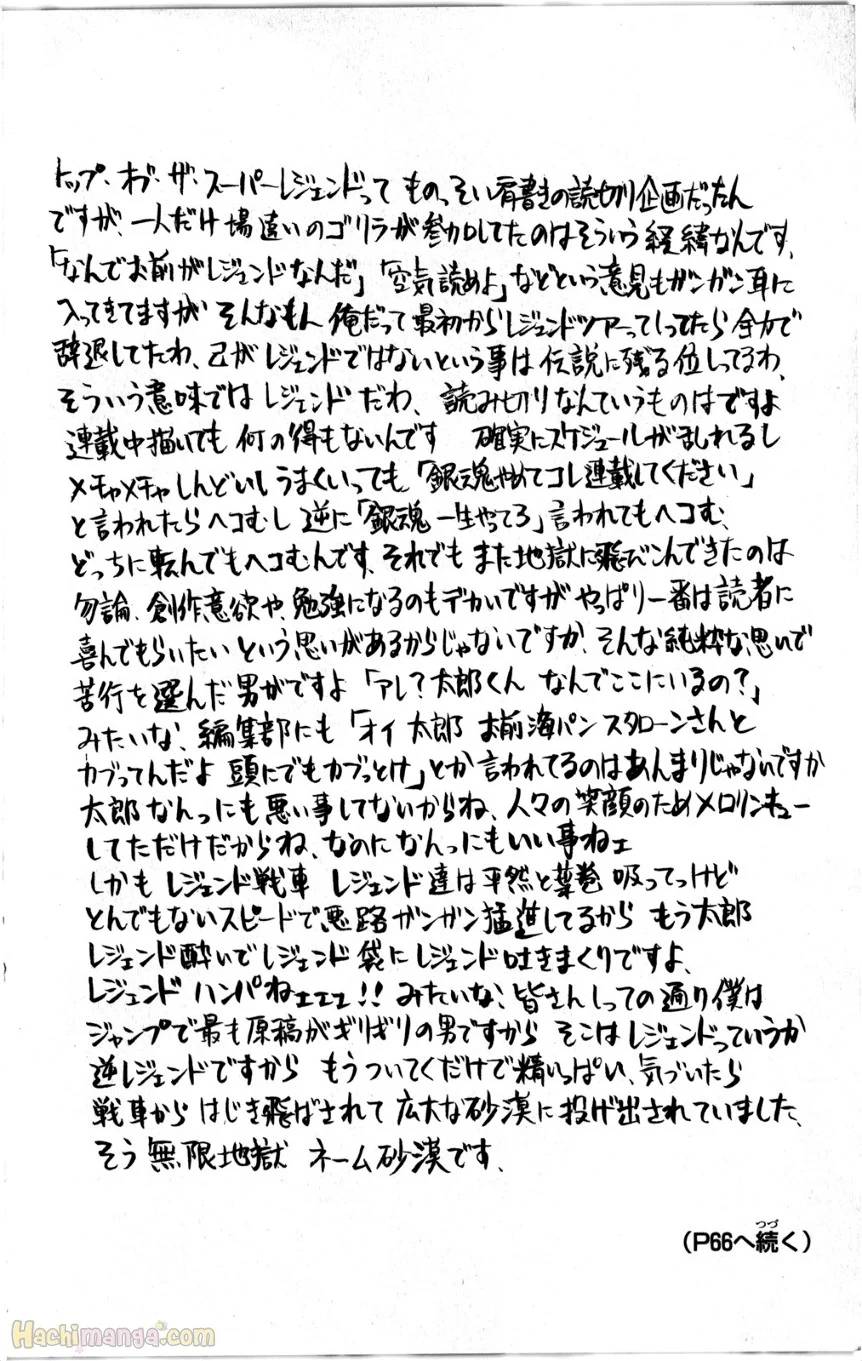 トップ・オブ・ザ・スーパーレジェンドって ものっそい肩書きの読切り企画だったん
ですが、一人だけ場違いのゴリラが参加してたのはそういう経緯なんです、
「なんでお前がレジェンドなんだ」「空気読めよ」などという意見もガンガン耳に
入ってきてますが そんなもん 俺だって最初からレジェンドツアーってしってたら全力で
辞退してたわ、己がレジェンドではないという事は伝説に残る位しってるわ、
そういう意味では レジェンドだわ、 読み切りなんていうものはですよ
連載中描いても 何の得もないんです 確実にスケジュールがましれるし
メチャメチャしんどいし うまくいっても「銀魂やめてコレ連載してください」
と言われたらヘコむし 逆に「銀魂一生やってろ」言われてもヘコむ、
どっちに転んでもヘコむんです、それでも また地獄に飛びこんできたのは
勿論、創作意欲や、勉強になるのもデカいですが やっぱり一番は読者に
喜んでもらいたい という思いがあるからじゃないですか、そんな純粋な思いで
苦行を選んだ男がですよ 「アレ？太郎くん なんでここにいるの？」
みたいな、編集部にも「オイ 太郎 お前海パン スタローンさんと
カブってんだよ 頭にでもカブっとけ」とか言われてるのはあんまりじゃないですか
太郎なんっにも悪い事してないからね、人々の笑顔のためメロリンキュー
してただけだからね、なのになんっにもいい事ねェ
しかも レジェンド戦車 レジェンド達は平然と葉巻 吸ってっけど
とんでもないスピードで悪路ガンガン猛進してるから もう太郎
レジェンド酔いでレジェンド袋にレジェンド吐きまくりですよ、
レジェンド ハンパねェェェ!! みたいな、皆さんしっての通り僕は
ジャンプで最も原稿がギリギリの男ですから そこはレジェンドっていうか
逆レジェンドですから もうついてくだけで精いっぱい、気づいたら
戦車から はじき飛ばされて 広大な砂漠に投げ出されていました、
そう 無限地獄 ネーム砂漠です、
(P66へ続く)
つづ
Hachimanga.com